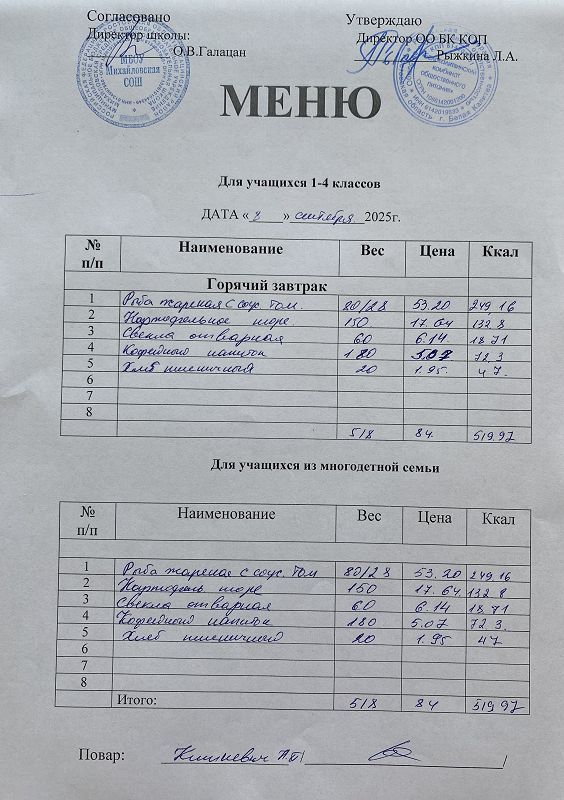 Согласовано Утверждаю
Директор школы: Директор ОО БК КОП
О.В.Галацан Рыжкина Л.А.
МБОУ
Михайловская
СОШ
комбинат
общественного
питания
МЕНЮ
Для учащихся 1-4 классов
ДАТА « 2 » сентября 2025г.
№ п/п Наименование Вес Цена Ккал
Горячий завтрак
1 Рыба жареная с соус. том. 80/28 53.20 249.16
2 Картофельное пюре 150 17.64 132.8
3 Свекла отварная 60 6.14 18.71
4 Кофейный напиток 180 5.07 72.3
5 Хлеб пшеничный 20 1.95 47.
6
7
8
518 84. 519.97
Для учащихся из многодетной семьи
№ п/п Наименование Вес Цена Ккал
1 Рыба жареная с соус. том 80/28 53.20 249.16
2 Картофель пюре 150 17.64 132.8
3 Свекла отварная 60 6.14 18.71
4 Кофейный напиток 180 5.07 72.3.
5 Хлеб пшеничный 20 1.95 47
6
7
8
Итого: 518 84 519,97
Повар: / /